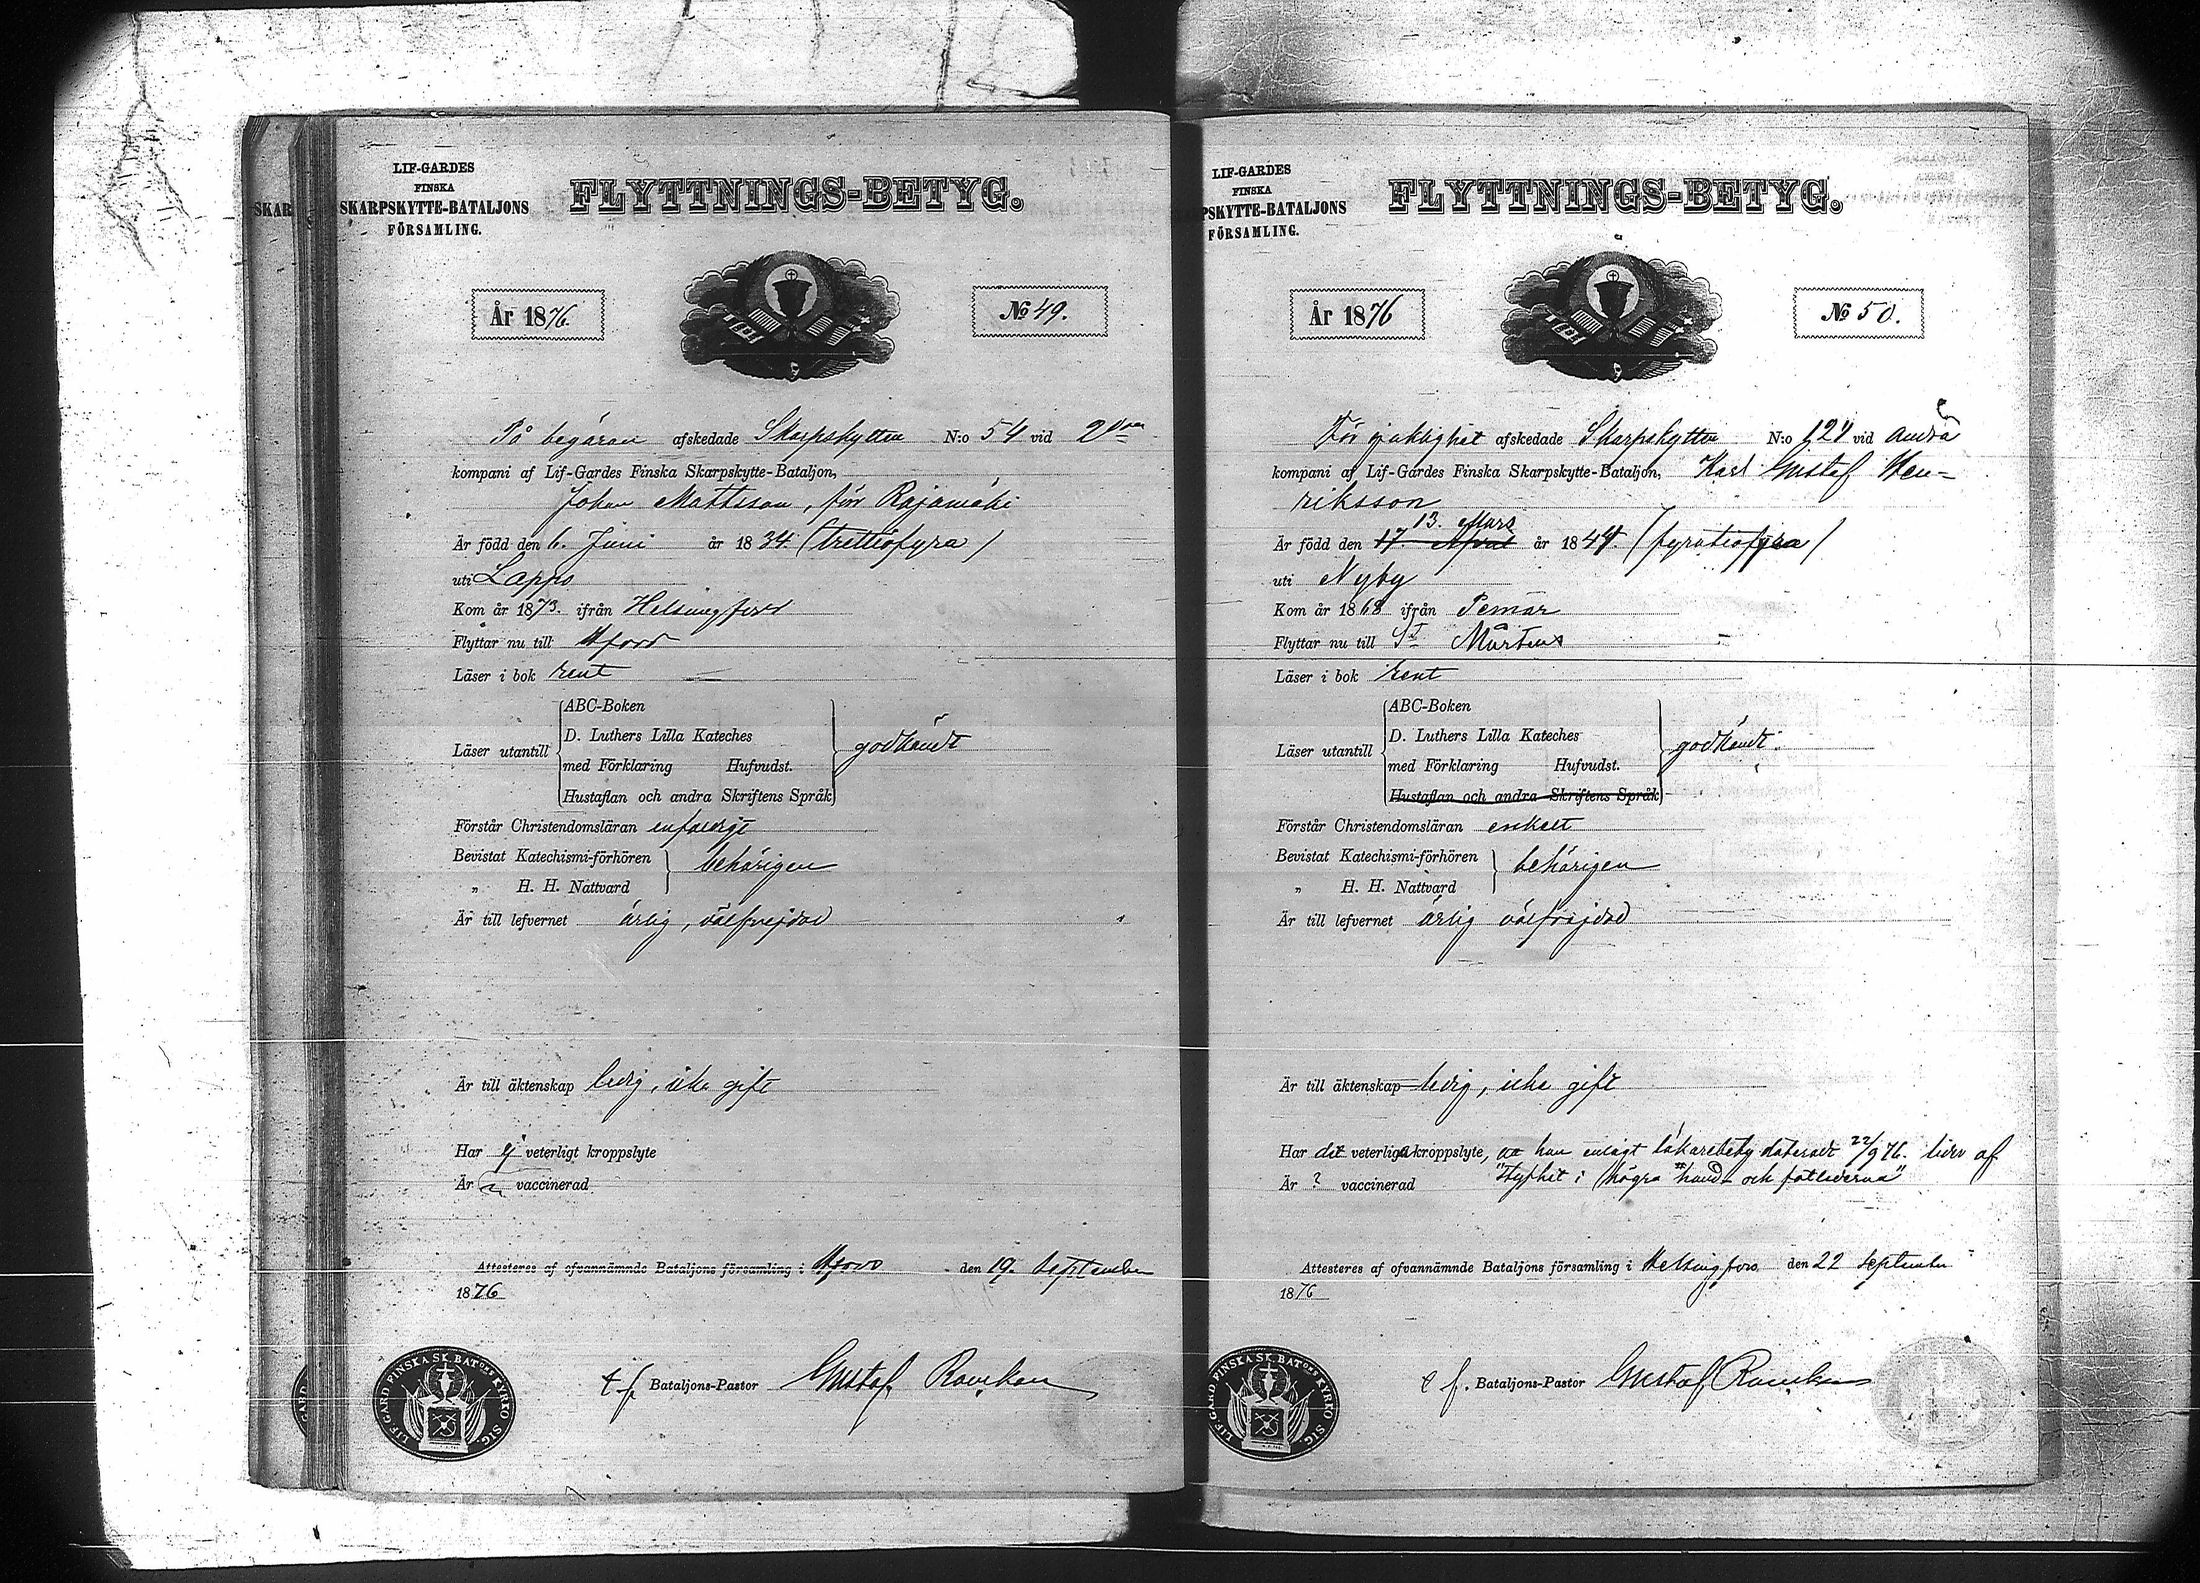 LIF-GARDES
FINSKA
SKARPSKYTTE-BATALJONS
FÖRSAMLING.
FLYTTNINGS-BETYG.
År 1876.
No 49.
På begäran afskedade Skarpskytten N:o 54 vid
kompani af Lif-Gardes Finska Skarpskytte-Bataljon,
Johan Mattsson, för Rajamäki
Är född den 6. Juni år 1834. (trettiofyra)
uti Lappo
Kom år 1873. ifrån Helsingfors
Flyttar nu till
Läser i bok rent
ABC-Boken
D. Luthers Lilla Kateches
Läser utantill godkändt
med Förklaring Hufvudst.
Hustaflan och andra Skriftens Språk
Förstår Christendomsläran enfaldigt
Bevistat Katechismi-förhören
behörigen
„ H. H. Nattvard
Är till lefvernet ärlig, välfrejdad
Är till äktenskap ledig, icke gift
Har ej veterligt kroppslyte
Är vaccinerad
Attesteras af ofvannämnde Bataljons församling i den 19. September
1876
t f. Bataljons-Pastor Gustaf
LIF GARD FINSKA SK. BATONS KYRKO SIG.
SKAR
PSKYTTE-BATALJONS
LIF-GARDES
FINSKA
FÖRSAMLING.
FLYTTNINGS-BETYG.
År 1876
No 50.
För sjuklighet afskedade Skarpskytten N:o 121 vid Andra
kompani af Lif-Gardes Finska Skarpskytte-Bataljon, Karl Gustaf Hen-
riksson
13. Mars
Är född den 17. April år 1844. (fyratiofyra)
uti Nyby
Kom år 1868 ifrån Pemar
Flyttar nu till St Mårtens
Läser i bok rent
ABC-Boken
D. Luthers Lilla Kateches
Läser utantill godkändt.
med Förklaring Hufvudst.
Hustaflan och andra Skriftens Språk
Förstår Christendomsläran enkelt
Bevistat Katechismi-förhören
behörigen
„ H. H. Nattvard
Är till lefvernet ärlig välfrejdad
Är till äktenskap ledig, icke gift
Har det veterliga kroppslyte, att han enligt läkarebetyg dateradt 22/9 76. lider af
Är ? vaccinerad "Styfhet i högra hand- och fotlederna"
Attesteres af ofvannämnde Bataljons församling i Helsingfors den 22 September
1876
t f. Bataljons-Pastor Gustaf
LIF GARD FINSKA SK. BATONS KYRKO SIG.